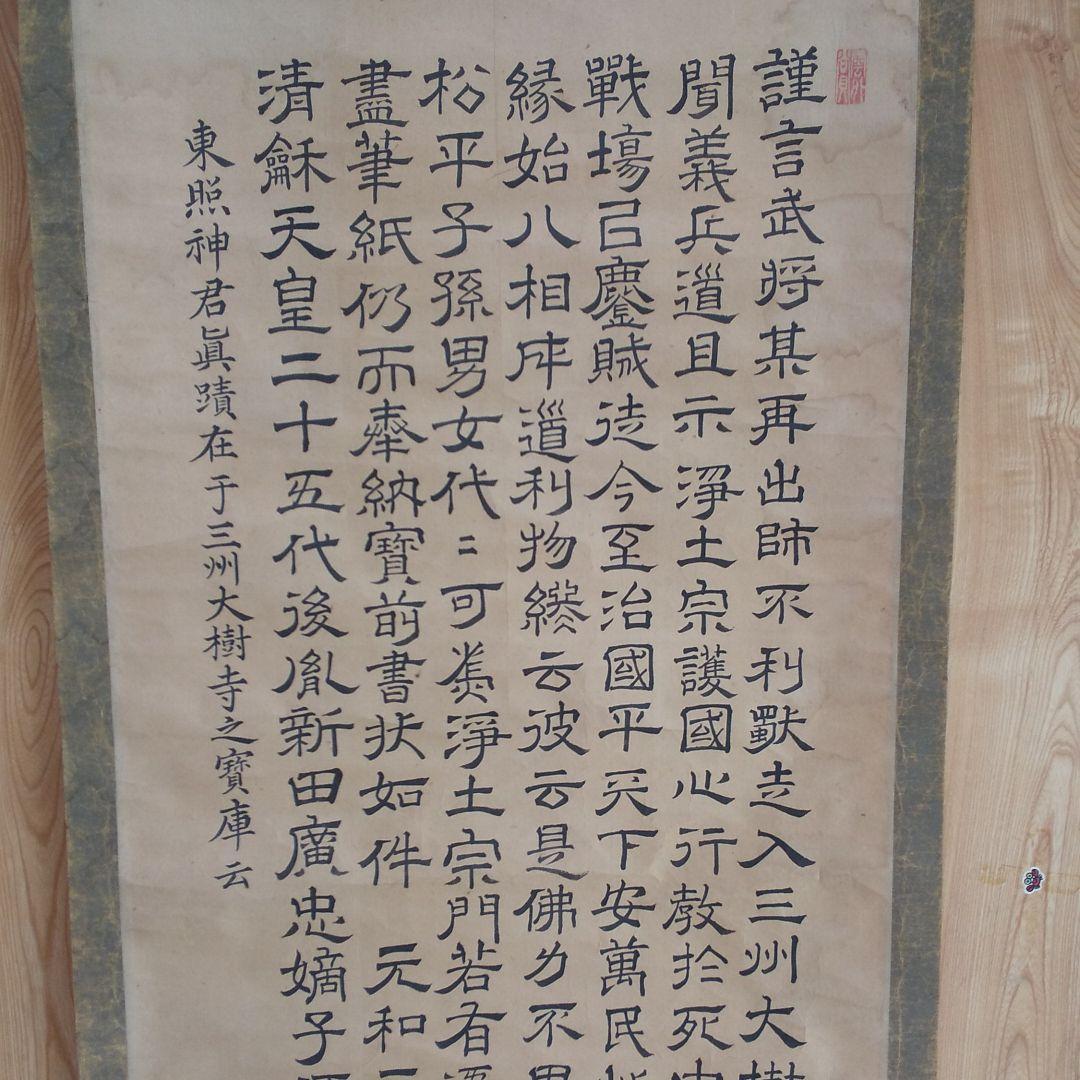 謹言武将某再出師不利獸走入三州大樹
聞義兵道且示淨土宗護國心行教於死
戰塲已鏖賊徒今至治國平天下安萬民
縁始八相成道利物總云彼云是佛力不
松平子孫男女代〻可為淨土宗門若有
盡筆紙仍而奉納寶前書状如件 元和
清龢天皇二十五代後胤新田廣忠嫡子
東照神君眞蹟在于三州大樹寺之寶庫云